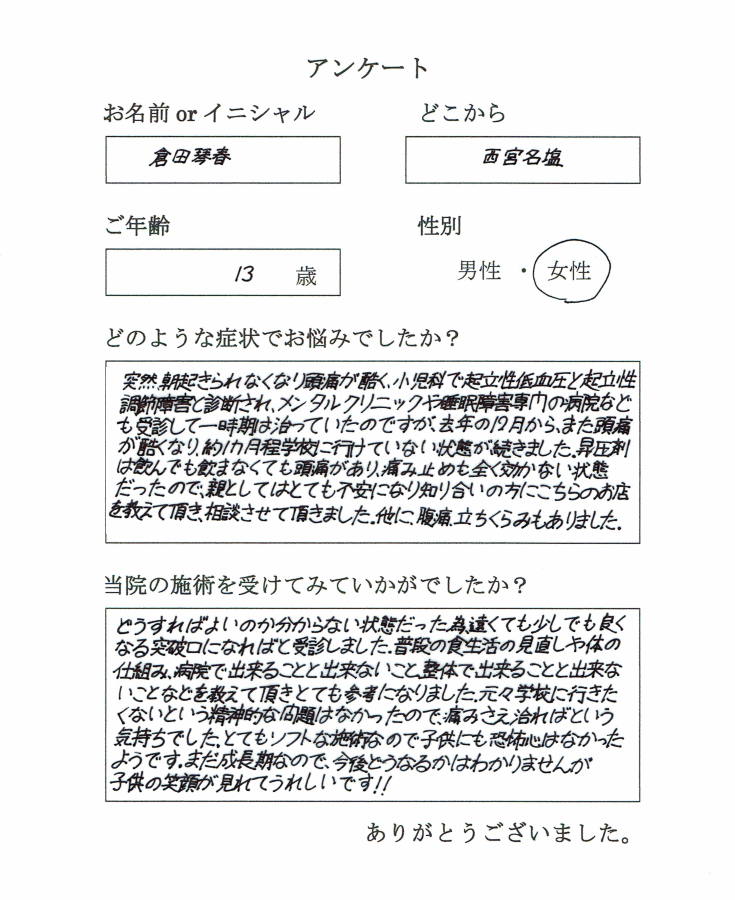 アンケート
お名前 or イニシャル
どこから
倉田琴春
西宮名塩
ご年齢
性別
13 歳
男性 ・ 女性
どのような症状でお悩みでしたか？
突然朝起きられなくなり頭痛が酷く、小児科で起立性低血圧と起立性
調節障害と診断され、メンタルクリニックや睡眠障害専門の病院など
も受診して一時期は治っていたのですが、去年の12月から、また頭痛
が酷くなり、約1カ月程学校に行けていない状態が続きました。昇圧剤
は飲んでも飲まなくても頭痛があり、痛み止めも全く効かない状態
だったので、親としてはとても不安になり知り合いの方にこちらのお店
を教えて頂き、相談させて頂きました。他に、腹痛、立ちくらみもありました。
当院の施術を受けてみていかがでしたか？
どうすればよいのか分からない状態だった為、遠くても少しでも良く
なる突破口になればと受診しました。普段の食生活の見直しや体の
仕組み、病院で出来ることと出来ないこと、整体で出来ることと出来な
いことなどを教えて頂きとても参考になりました。元々学校に行きた
くないという精神的な問題はなかったので、痛みさえ治ればという
気持ちでした。とてもソフトな施術なので子供にも恐怖心はなかった
ようです。まだ成長期なので、今後どうなるかはわかりませんが
子供の笑顔が見れてうれしいです!!
ありがとうございました。